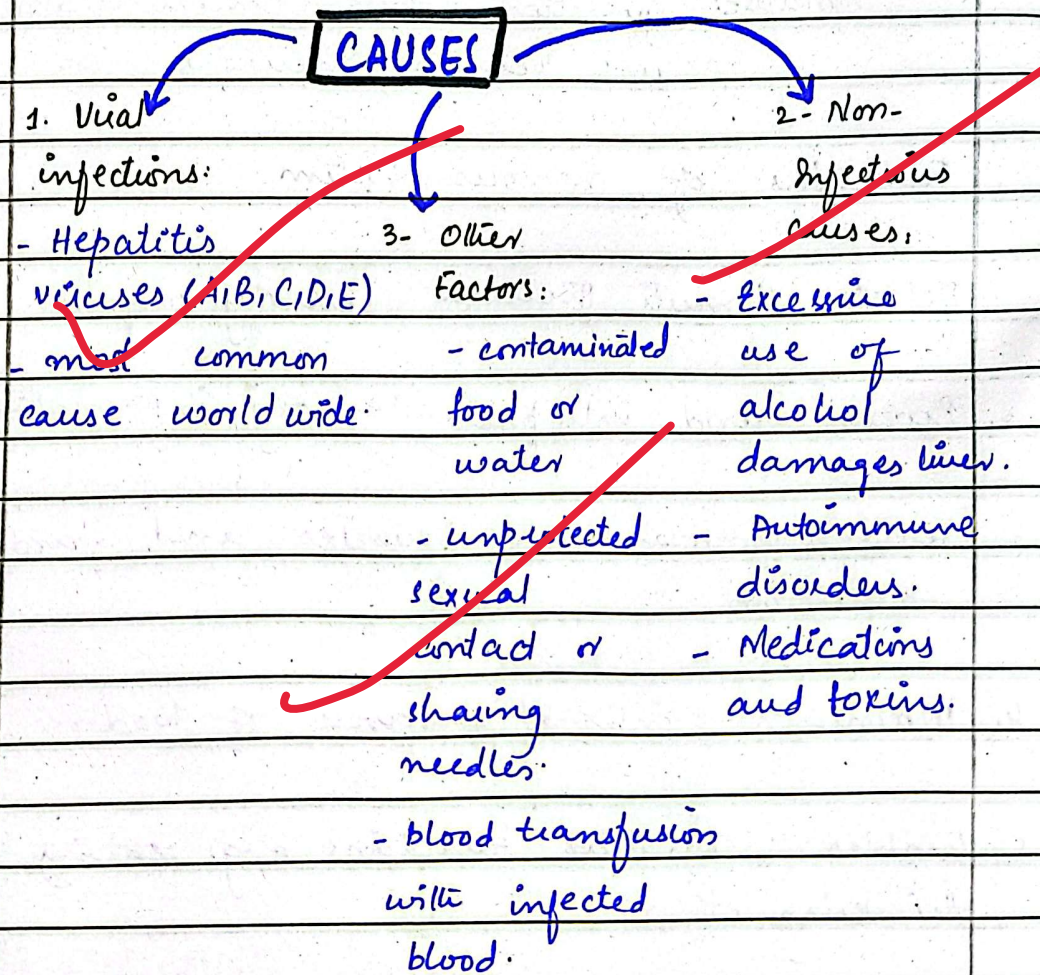 CAUSES
1. Viral
infections:
- Hepatitis
viruses (A, B, C, D, E)
- most common
cause world wide.
3- Other
Factors:
- contaminated
food or
water
- unprotected
sexual
contact or
sharing
needles.
- blood transfusion
with infected
blood.
2- Non-
Infectious
causes.
- Excessive
use of
alcohol
damages liver.
- Autoimmune
disorders.
- Medications
and toxins.